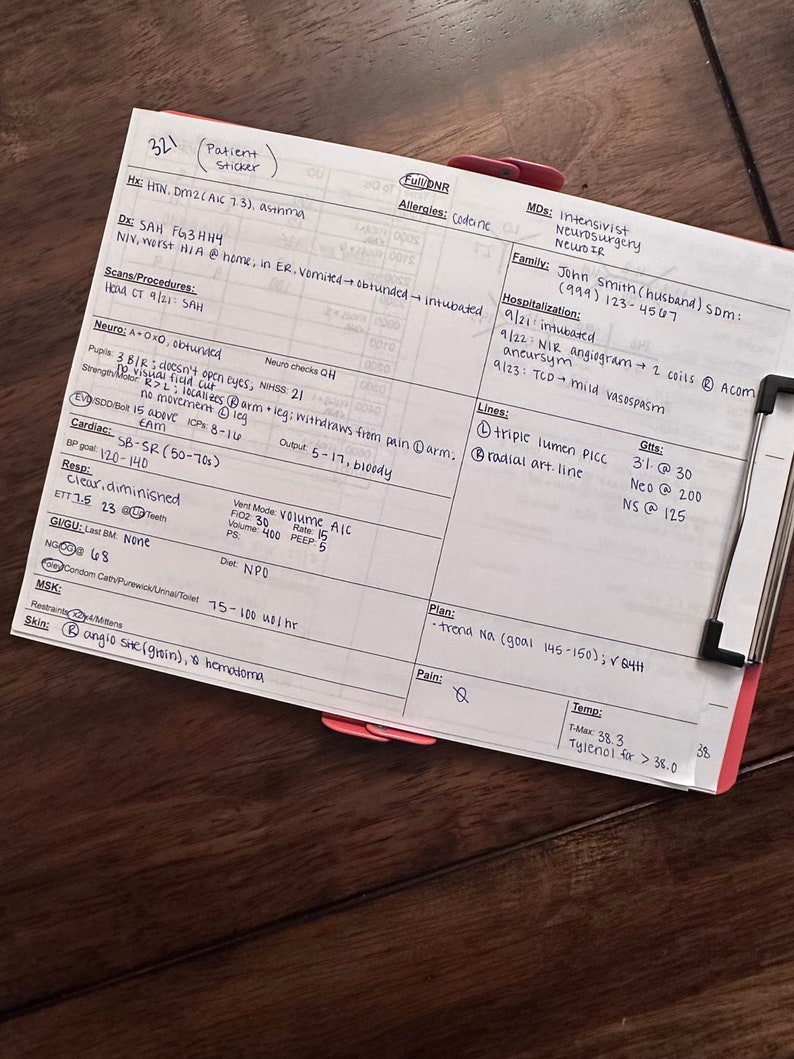 321 (Patient Sticker)
Full/DNR
Hx: HTN, DM2 (A1C 7.3), asthma
Allergies: Codeine
MDs: Intensivist
Neurosurgery
Neuro IR
Dx: SAH FG3 HH4
N/V, worst H/A @ home; in ER, vomited → obtunded → intubated
Scans/Procedures:
Head CT 9/21: SAH
Family: John Smith (husband) SDM:
(999) 123-4567
Hospitalization:
9/21: intubated
9/22: NIR angiogram → 2 coils Ⓡ Acom
aneursym
9/23: TCD → mild vasospasm
Neuro: A+Ox0, obtunded
Neuro checks QH
Pupils: 3 B/R; doesn't open eyes,
NIHSS: 21
no visual field cut
Strength/Motor: R>L; localizes Ⓡ arm + leg; withdraws from pain Ⓛ arm;
no movement Ⓛ leg
EVD/SDD/Bolt 15 above
EAM
ICPs: 8-16
Output: 5-17, bloody
Cardiac: SB-SR (50-70s)
BP goal: 120-140
Lines:
Ⓛ triple lumen PICC
Ⓡ radial art. line
Gtts:
3% @ 30
Neo @ 200
NS @ 125
Resp: clear, diminished
ETT 7.5 23 @Lip/Teeth
Vent Mode: Volume A/C
FiO2: 30 Rate: 15
Volume: 400 PEEP: 5
PS:
GI/GU: Last BM: None
NG/OG@ 68
Diet: NPO
Foley/Condom Cath/Purewick/Urinal/Toilet 75-100 uo/hr
MSK:
Restraints: x2/x4/Mittens
Skin: Ⓡ angio site (groin), Ø hematoma
Plan:
· trend Na (goal 145-150); ✓ Q4H
Pain:
Ø
Temp:
T-Max: 38.3
Tylenol for > 38.0
38